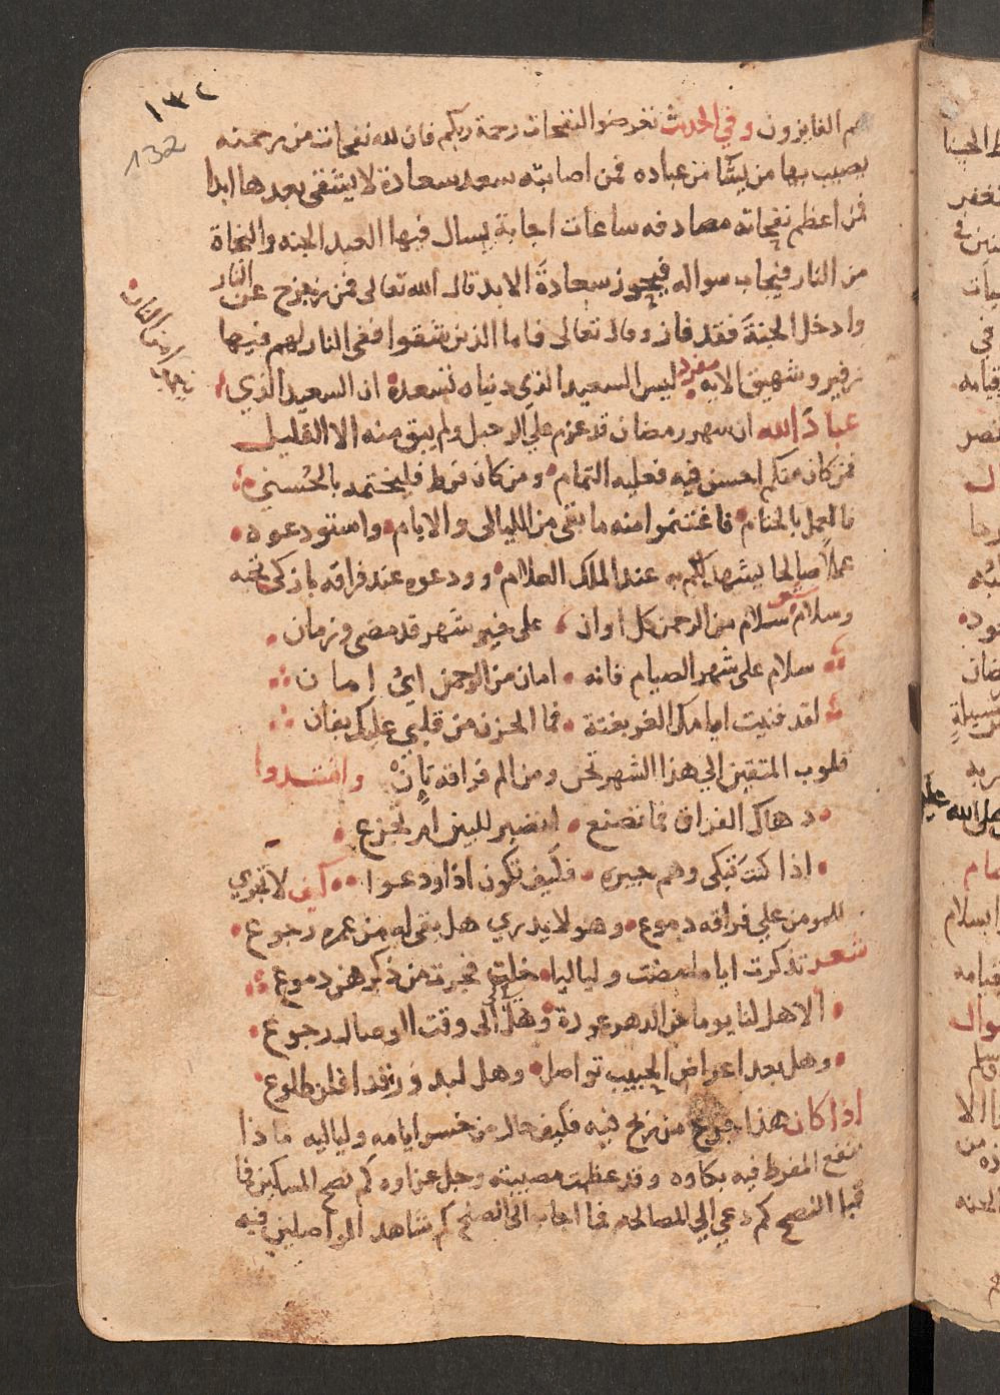 ١٣٢
132
هم الفايزون وفي الحديث تعرضوا لنفحات رحمة ربكم فان لله نفحات من رحمته
يصيب بها من يشا من عباده فمن اصابته سعد سعادة لا يشقى بعدها ابدا
فمن اعظم نفحاته مصادفه ساعات اجابة يسال فيها العبد الجنه والنجاة
من النار فيجاب سواله فيجوز سعادة الابد قال الله تعالى فمن زحزح عن النار
وادخل الجنة فقد فاز وقال تعالى فاما الذين شقوا ففي النار لهم فيها
زفير وشهيق الايه مفرد ليس السعيد الذي دنياه تسعدة ان السعيد الذي
ينجوا من النار
عباد الله ان شهر رمضان قد عزم على الرحيل ولم يبق منه الا القليل
فمن كان منكم احسن فيه فعليه التمام ومن كان فرط فليختمه بالحسنى
فالعمل بالختام فاغتنموا منه ما بقى من الليالى والايام واستودعوه
عملا صالحا يشهد لكم به عند الملك العلام وودعوه عند فراقه بازكى تحيه
وسلام شعر سلام من الرحمن كل اوان على خير شهر قد مضى وزمان
سلام على شهر الصيام فانه امان من الرحمن اي امان
لقد فنيت ايامك الغر بغتة فما الحزن من قلبي عليك بفان
قلوب المتقين الي هذا الشهر تحن ومن الم فراقه تان وانشدوا
دهاك الفراق فما تصنع اتصبر للبين ام تجزع
اذا كنت تبكى وهم جيره فكيف تكون اذا ودعوا كيف لا تجري
للمومن علي فراقه دموع وهو لا يدري هل بقى له من عمره رجوع
شعر تذكرت اياما مضت ولياليا خلت فجرت من ذكرهن دموع
الا هل لنا يوما من الدهر عودة وهل الى وقت الوصال رجوع
وهل بعد اعراض الحبيب تواصل وهل لبدور قد افلن طلوع
اذا كان هذا جزع من ربح فيه فكيف حال من خسر ايامه ولياليه ماذا
ينفع المفرط فيه بكاوه وقد عظمت مصيبته وجل عزاوه كم نصح المسكين فما
قبل النصح كم دعي الي المصالحه فما اجاب الى الصلح كم شاهد الواصلين فيه